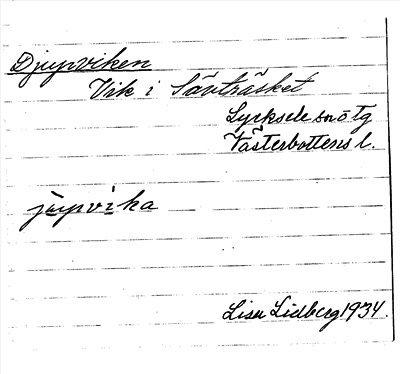 Djupviken
Vik i Sävträsket
Lycksele snö tg
Västerbottens l.
jupvika
Lisa Lidberg 1934.